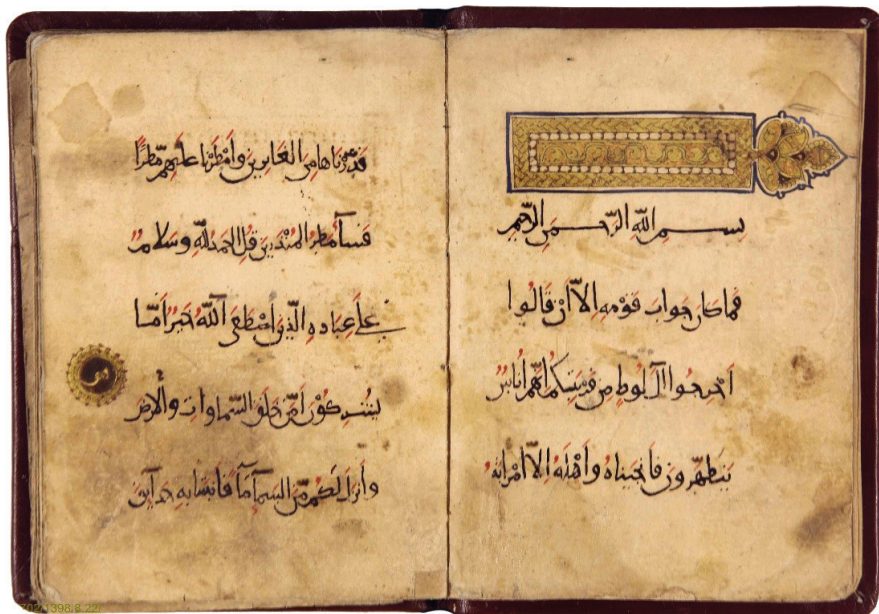 بسم الله الرحمن الرحيم
فما كان جواب قومه الا أن قالوا
أخرجوا آل لوط من قريتكم انهم اناس
يتطهرون فأنجيناه وأهله الا امرأته
قدرناها من الغابرين وأمطرنا عليهم مطرا
فسآ مطر المنذرين قل الحمد لله وسلام
على عباده الذين اصطفى آلله خير أمّا
يشركون أمّن خلق السماوات والارض
وأنزل لكم من السمآ مآ فأنبتنا به حدآئق
702.1398.8.22